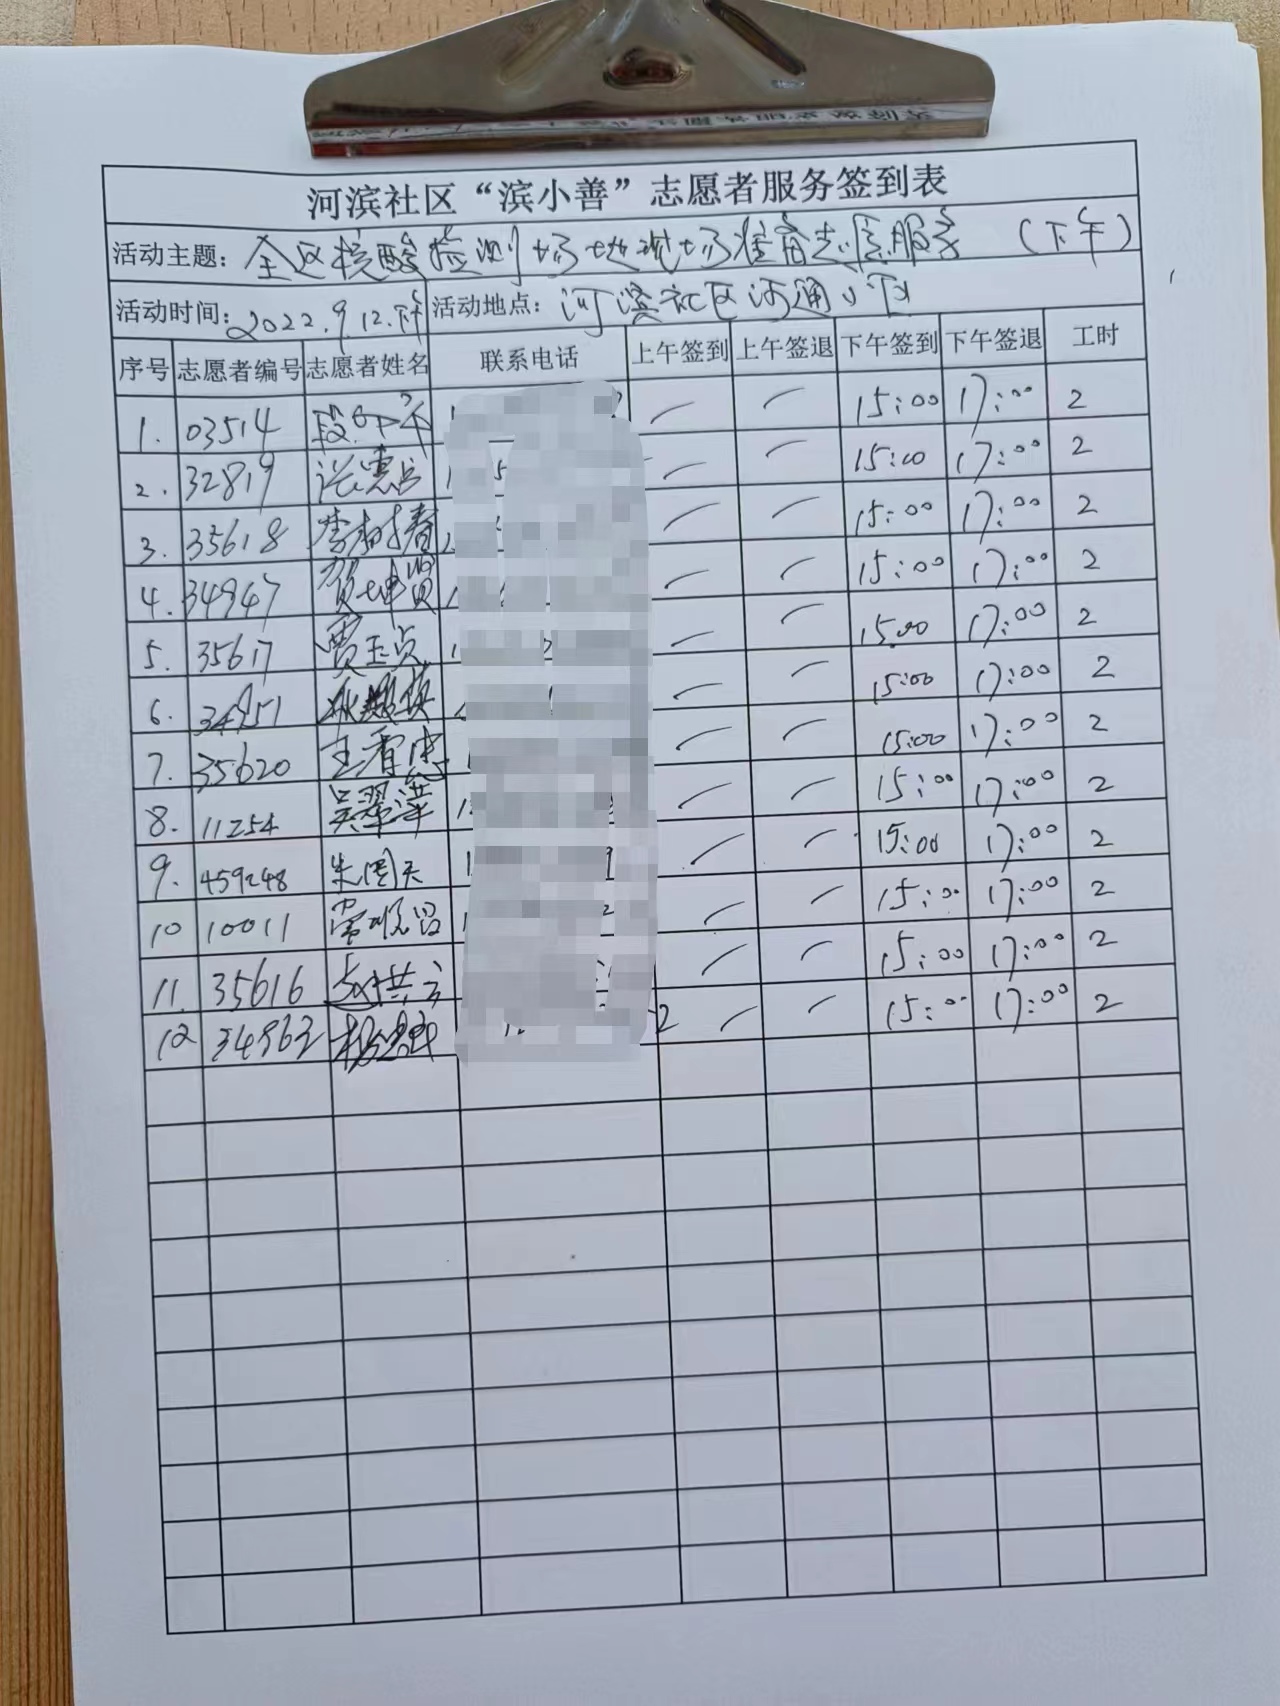 河滨社区“滨小善”志愿者服务签到表
活动主题：全区核酸检测场地现场准备志愿服务（下午）
活动时间：2022.9.12.下午 活动地点：河滨社区河通小区
序号 志愿者编号 志愿者姓名 联系电话 上午签到 上午签退 下午签到 下午签退 工时
1. 03514 段 15:00 17:00 2
2. 32819 15:00 17:00 2
3. 35618 李树春 15:00 17:00 2
4. 34947 贺坤贤 15:00 17:00 2
5. 35617 贾玉贞 15:00 17:00 2
6. 34951 15:00 17:00 2
7. 35620 王春忠 15:00 17:00 2
8. 11254 吴翠萍 15:00 17:00 2
9. 459248 朱 15:00 17:00 2
10 10011 常顺 15:00 17:00 2
11. 35616 赵洪 15:00 17:00 2
12 34963 杨 15:00 17:00 2